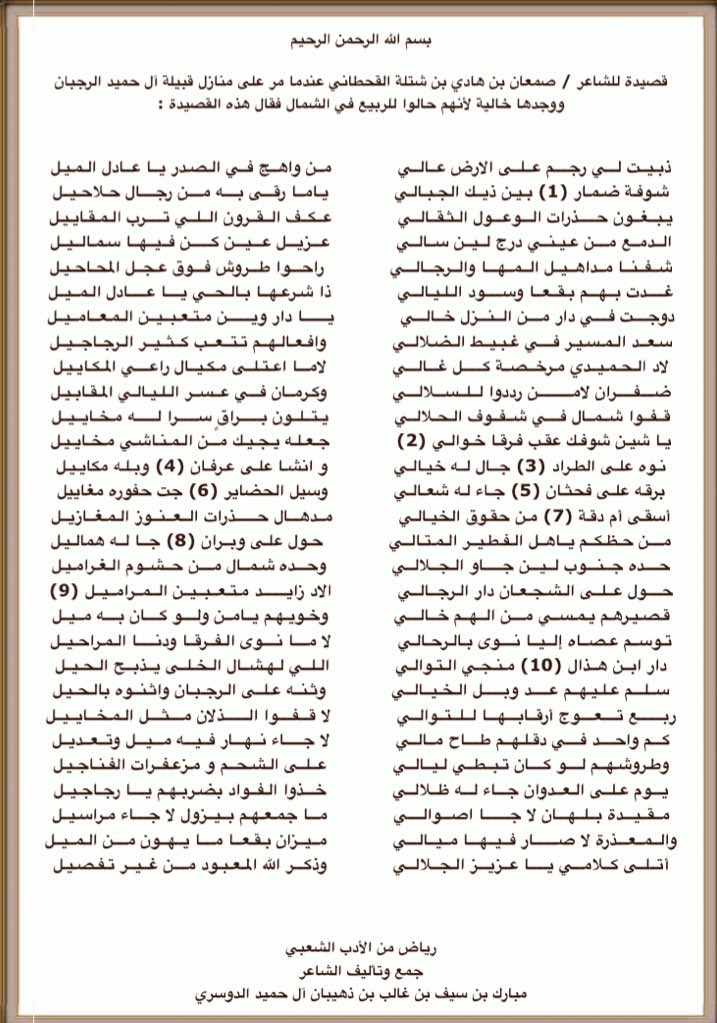 بسم الله الرحمن الرحيم
قصيدة للشاعر / صمعان بن هادي بن شتلة القحطاني عندما مر على منازل قبيلة آل حميد الرجبان
ووجدها خالية لأنهم حالوا للربيع في الشمال فقال هذه القصيدة :
ذبيت لي رجم على الارض عالي من واهج في الصدر يا عادل الميل
شوفة ضمار (1) بين ذيك الجبالي ياما رقى به من رجال حلاحيل
يبغون حذرات الوعول الثقالي عكف القرون اللي ترب المقاييل
الدمع من عيني درج لين سالي عزيل عين كن فيها سماليل
شفنا مداهيل المها والرجالي راحوا طروش فوق عجل المحاحيل
غدت بهم بقعا وسود الليالي ذا شرعها بالحي يا عادل الميل
دوجت في دار من النزل خالي يا دار وين متعبين المعاميل
سعد المسير في غبيط الضلالي وافعالهم تتعب كثير الرجاجيل
لاد الحميدي مرخصة كل غالي لاما اعتلى مكيال راعي المكاييل
ضفران لامن رددوا للسلالي وكرمان في عسر الليالي المقابيل
قفوا شمال في شفوف الحلالي يتلون براقٍ سرا له مخاييل
يا شين شوفك عقب فرقا خوالي (2) جعله يجيك من المناشي مخاييل
نوه على الطراد (3) جال له خيالي و انشا على عرفان (4) وبله مكاييل
برقه على فحثان (5) جاء له شعالي وسيل الحضاير (6) جت حفوره مغاييل
أسقى أم دقة (7) من حقوق الخيالي مدهال حذرات العنوز المغازيل
من حظكم ياهل الفطير المتالي حول على وبران (8) جا له هماليل
حده جنوب لين جاو الجلالي وحده شمال من حشوم الغراميل
حول على الشجعان دار الرجالي الاد زايد متعبين المراميل (9)
قصيرهم يمسي من الهم خالي وخويهم يامن ولو كان به ميل
توسم عصاه إليا نوى بالرحالي لا ما نوى الفرقا ودنا المراحيل
دار ابن هذال (10) منجي التوالي اللي لهشال الخلى يذبح الحيل
سلم عليهم عد وبل الخيالي وثنه على الرجبان واثنوه بالحيل
ربع تعوج أرقابها للتوالي لا قفوا الذلان مثل المخاييل
كم واحد في دقلهم طاح مالي لا جاء نهار فيه ميل وتعديل
وطروشهم لو كان تبطي ليالي على الشحم و مزعفرات الفناجيل
يوم على العدوان جاء له ظلالي خذوا الفواد بضربهم يا رجاجيل
مقيدة بلهان لا جا اصوالي ما جمعهم بيزول لا جاء مراسيل
والمعذرة لا صار فيها ميالي ميزان بقعا ما يهون من الميل
أتلى كلامي يا عزيز الجلالي وذكر الله المعبود من غير تفصيل
رياض من الأدب الشعبي
جمع وتأليف الشاعر
مبارك بن سيف بن غالب بن ذهيبان آل حميد الدوسري